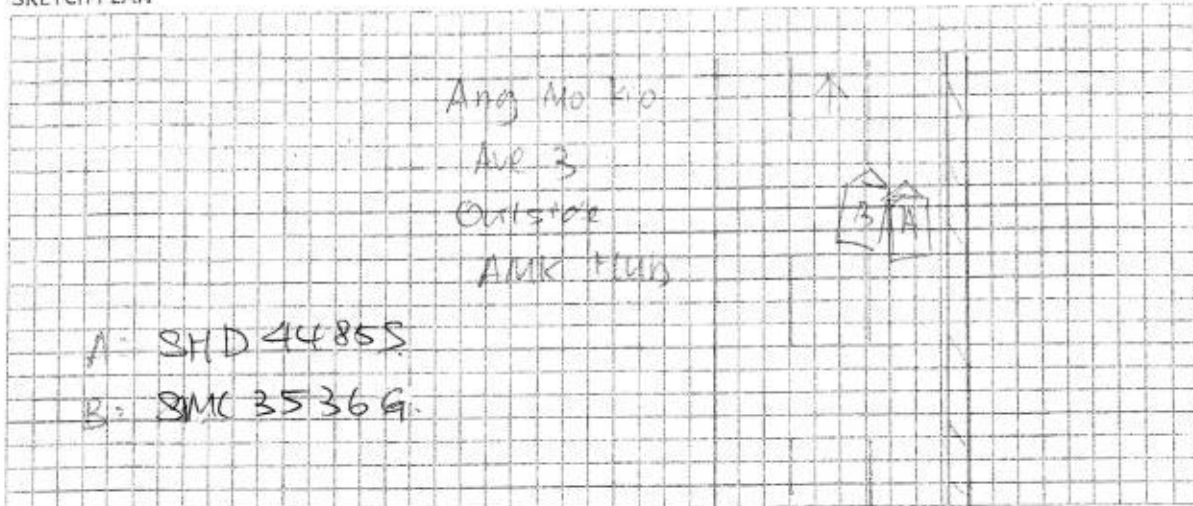 SKETCH PLAN
Ang Mo Kio
Ave 3
Outside
AMK HUB
B A
A: SHD 4485S
B: SMC 3536G.